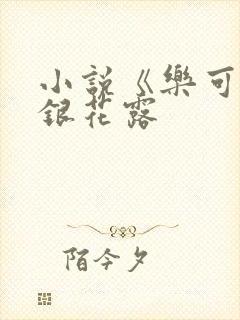 小説《樂可
銀花露
陌今夕